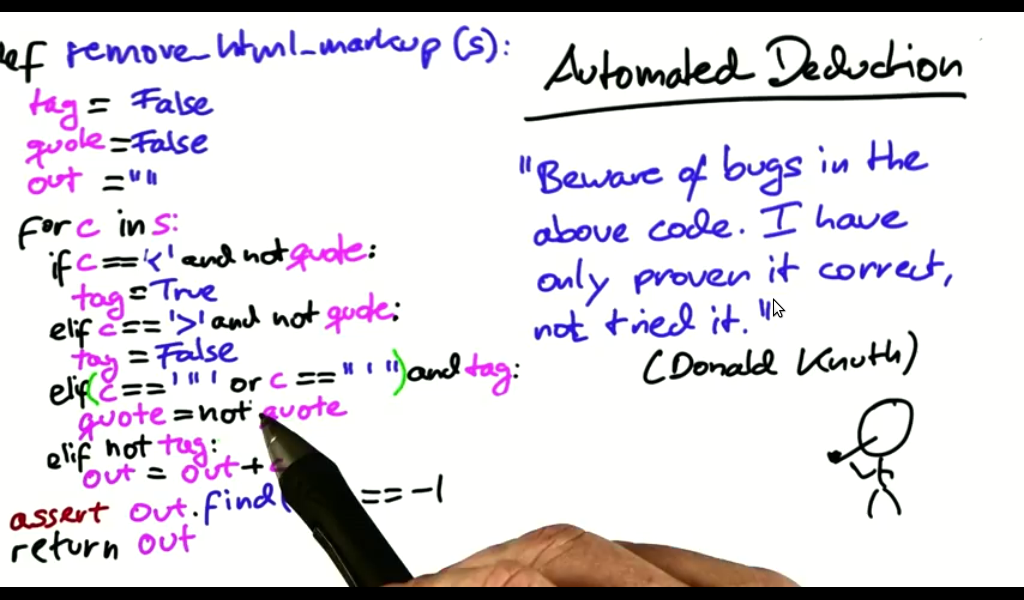 def remove_html_markup (s):
tag = False
quote = False
out = ""
for c in s:
if c == '<' and not quote:
tag = True
elif c == '>' and not quote:
tag = False
elif (c == '"' or c == "'") and tag:
quote = not quote
elif not tag:
out = out +
assert out.find( == -1
return out
Automated Deduction
"Beware of bugs in the
above code. I have
only proven it correct,
not tried it."
(Donald Knuth)